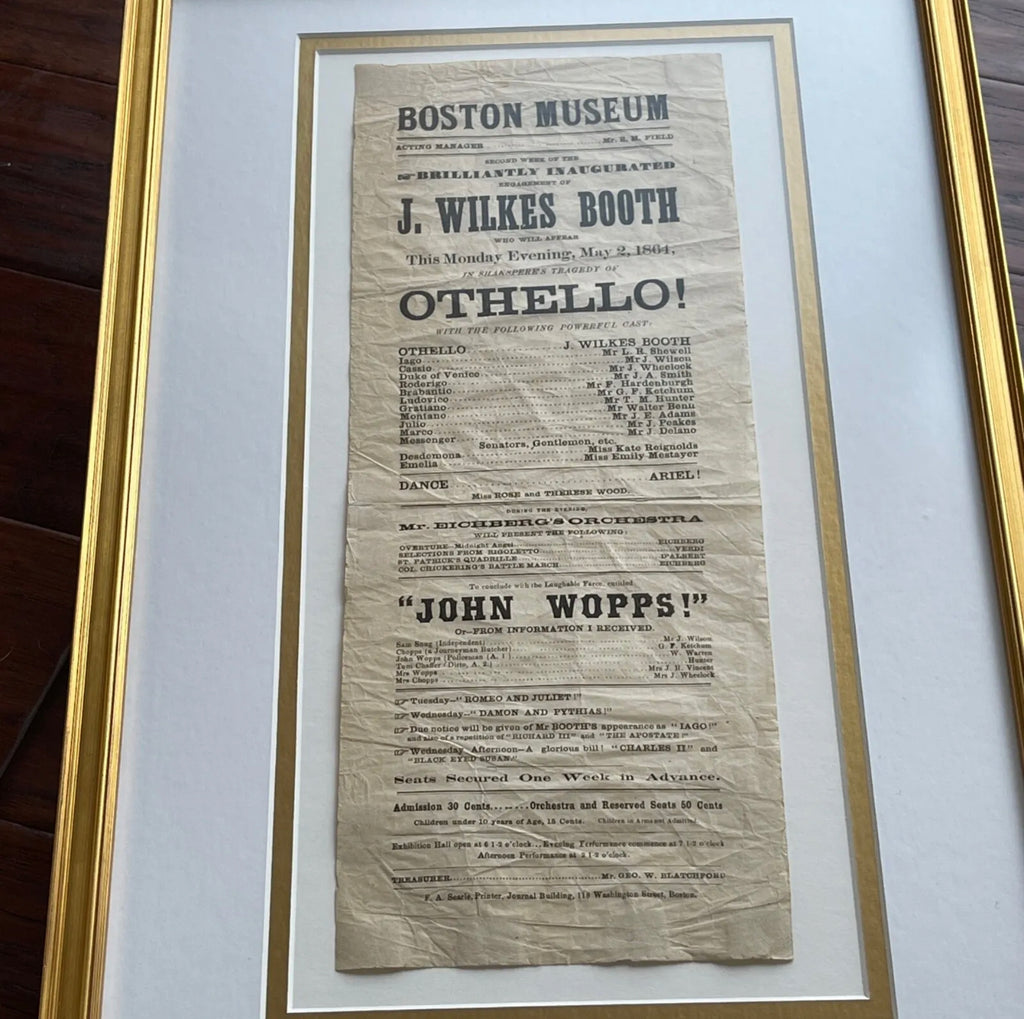 BOSTON MUSEUM
ACTING MANAGER Mr. R. M. FIELD
SECOND WEEK OF THE
BRILLIANTLY INAUGURATED
ENGAGEMENT OF
J. WILKES BOOTH
WHO WILL APPEAR
This Monday Evening, May 2, 1864,
IN SHAKSPERE'S TRAGEDY OF
OTHELLO!
WITH THE FOLLOWING POWERFUL CAST:
OTHELLO J. WILKES BOOTH
Iago Mr L. R. Shewell
Cassio Mr J. Wilson
Duke of Venice Mr J. Wheelock
Roderigo Mr J. A. Smith
Brabantio Mr F. Hardenburgh
Ludovico Mr G. F. Ketchum
Gratiano Mr T. M. Hunter
Montano Mr Walter Benn
Julio Mr J. E. Adams
Marco Mr J. Peakes
Messenger Mr J. Delano
Senators, Gentlemen, etc.
Desdemona Miss Kate Reignolds
Emelia Miss Emily Mestayer
DANCE ARIEL!
Miss ROSE and THERESE WOOD.
DURING THE EVENING,
Mr. EICHBERG'S ORCHESTRA
WILL PRESENT THE FOLLOWING:
OVERTURE—Midnight Angel EICHBERG
SELECTIONS FROM RIGOLETTO VERDI
ST. PATRICK'S QUADRILLE D'ALBERT
COL. CHICKERING'S BATTLE MARCH EICHBERG
To conclude with the Laughable Farce, entitled
"JOHN WOPPS!"
Or—FROM INFORMATION I RECEIVED.
Sam Snug (Independent) Mr J. Wilson
Chopps (a Journeyman Butcher) G. F. Ketchum
John Wopps (Policeman (A. 1) W. Warren
Tom Chaffer (Ditto, A. 2.) Hunter
Mrs Wopps Mrs J. R. Vincent
Mrs Chopps Mrs J. Wheelock
☞ Tuesday—"ROMEO AND JULIET!"
☞ Wednesday—"DAMON AND PYTHIAS!"
☞ Due notice will be given of Mr BOOTH'S appearance as "IAGO!"
and also of a repetition of "RICHARD III" and "THE APOSTATE!"
☞ Wednesday Afternoon—A glorious bill! "CHARLES II" and
"BLACK EYED SUSAN."
Seats Secured One Week in Advance.
Admission 30 Cents.......Orchestra and Reserved Seats 50 Cents
Children under 10 years of Age, 15 Cents. Children in Arms not Admitted
Exhibition Hall open at 6 1-2 o'clock...Evening Performance commence at 7 1-2 o'clock
Afternoon Performance at 2 1-2 o'clock.
TREASURER Mr. GEO. W. BLATCHFORD
F. A. Searle, Printer, Journal Building, 118 Washington Street, Boston.